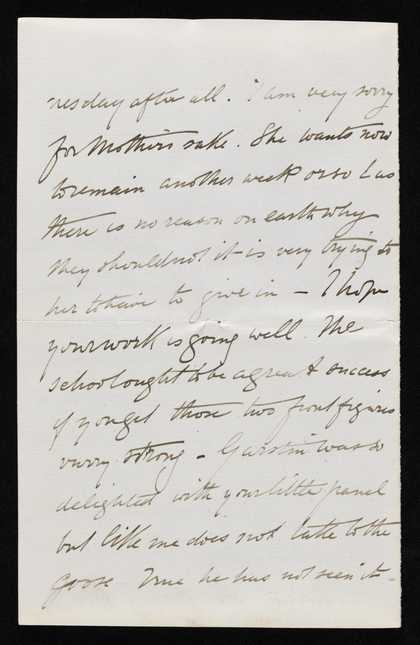 nesday after all. I am very sorry
for Mothers sake. She wants now
to remain another week or so & as
there is no reason on earth why
they should not it is very trying to
her to have to give in – I hope
your work is going well. The
school ought to be a great success
if you get those two front figures
vurry strong – Garstin was so
delighted with your little panel
but like me does not take to the
goose True he has not seen it –